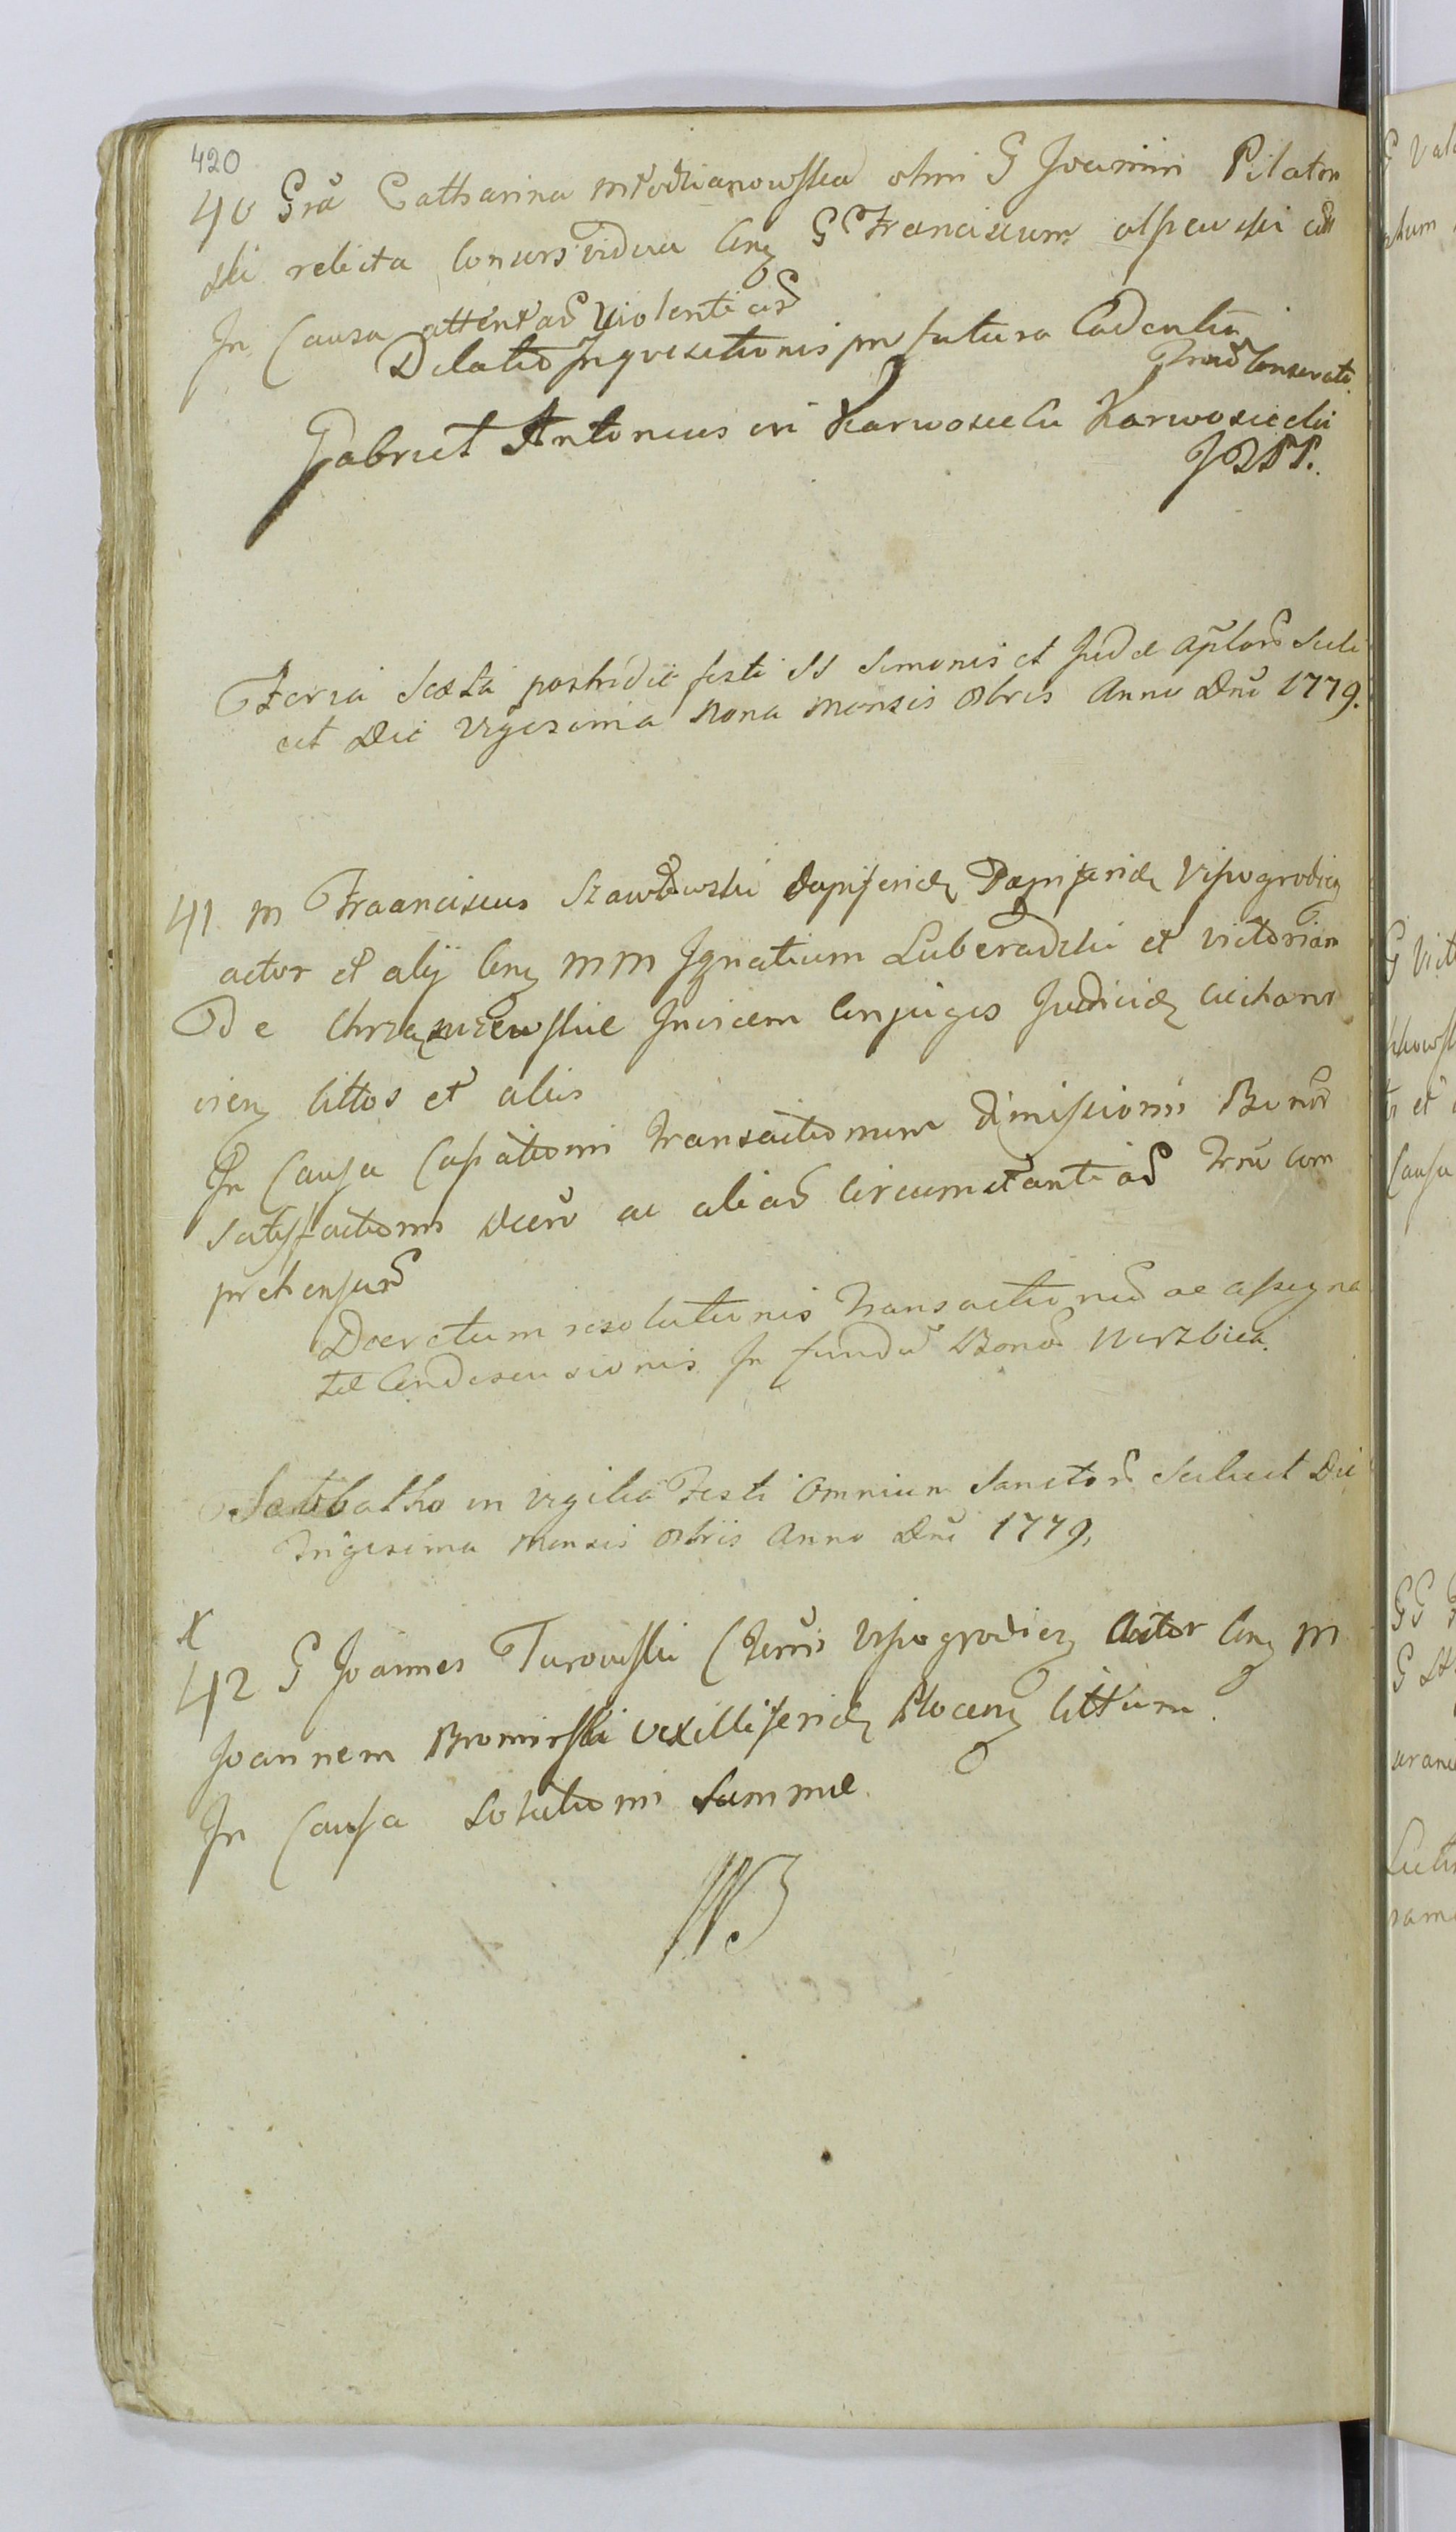 420
40 Gra Catharina Młodzianowska olim G Joannin Pilaton
ski relicta consors vidua Con G Franciscum
In Causa attentar Violentiar
Dilatio Inquisitionis pro futura Cadentia
Conservata
Gabriel Antonius in Karwosieeki Karwosiecki
JZPP.
Feria Sexta postridie festi SS Simonis et Judæ Aplor Scili
cet Die Vigesima Nona Mensis 8bris Anno Dni 1779.
41 M Fraanciscus Szawłowski Dapiferid Dapiferid Vissogrodien
actor et alij Con MM Ignatium Luberadzki et Victoriam
De Chrzanowskie Invicem Conjuges Judicid Ciechano
vien cittos et alios
In Causa Cassationis Transactionum Dimissionis Bonor
Satisfactionis Decr ac aliar Circumstantiar Trm com
prehensar
Decretum resolutionis Transactionu ac assigna
tæ Condescensionis In fundu Bonor Wierzbica.
Sabbatho in Vigilia Festi Omnium Sanctor Scilicet Die
Trigesima Mensis 8bris Anno Dni 1779,
X
42 G Joannes Turowski Ctrris Vissogrodien Actor Con M
Joannem Bromirski Vexilliferid Plocen cittum.
In Causa Solutionis Summæ.